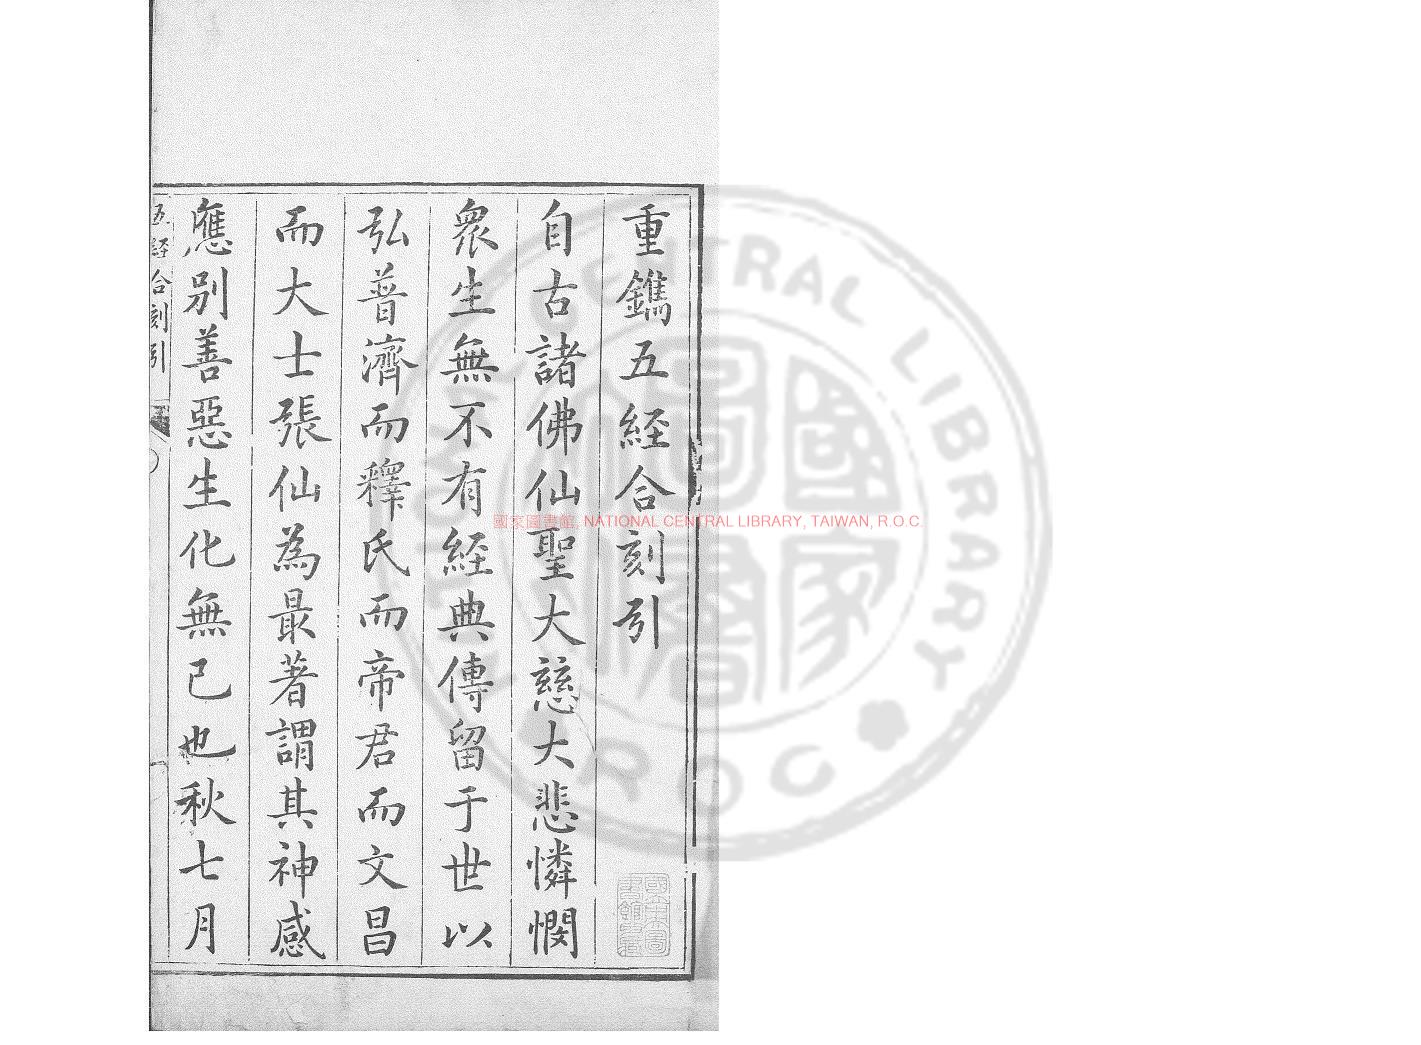 重鐫五経合刻引
自古諸佛仙聖大慈大悲憐憫
衆生無不有経典傳留于世以
弘普濟而釋氏而帝君而文昌
而大士張仙為最著謂其神感
應別善惡生化無已也秋七月
五経合刻引
國家圖書館, NATIONAL CENTRAL LIBRARY, TAIWAN, R.O.C.
NATIONAL CENTRAL LIBRARY
ROC
國家圖書館
國家圖書館藏